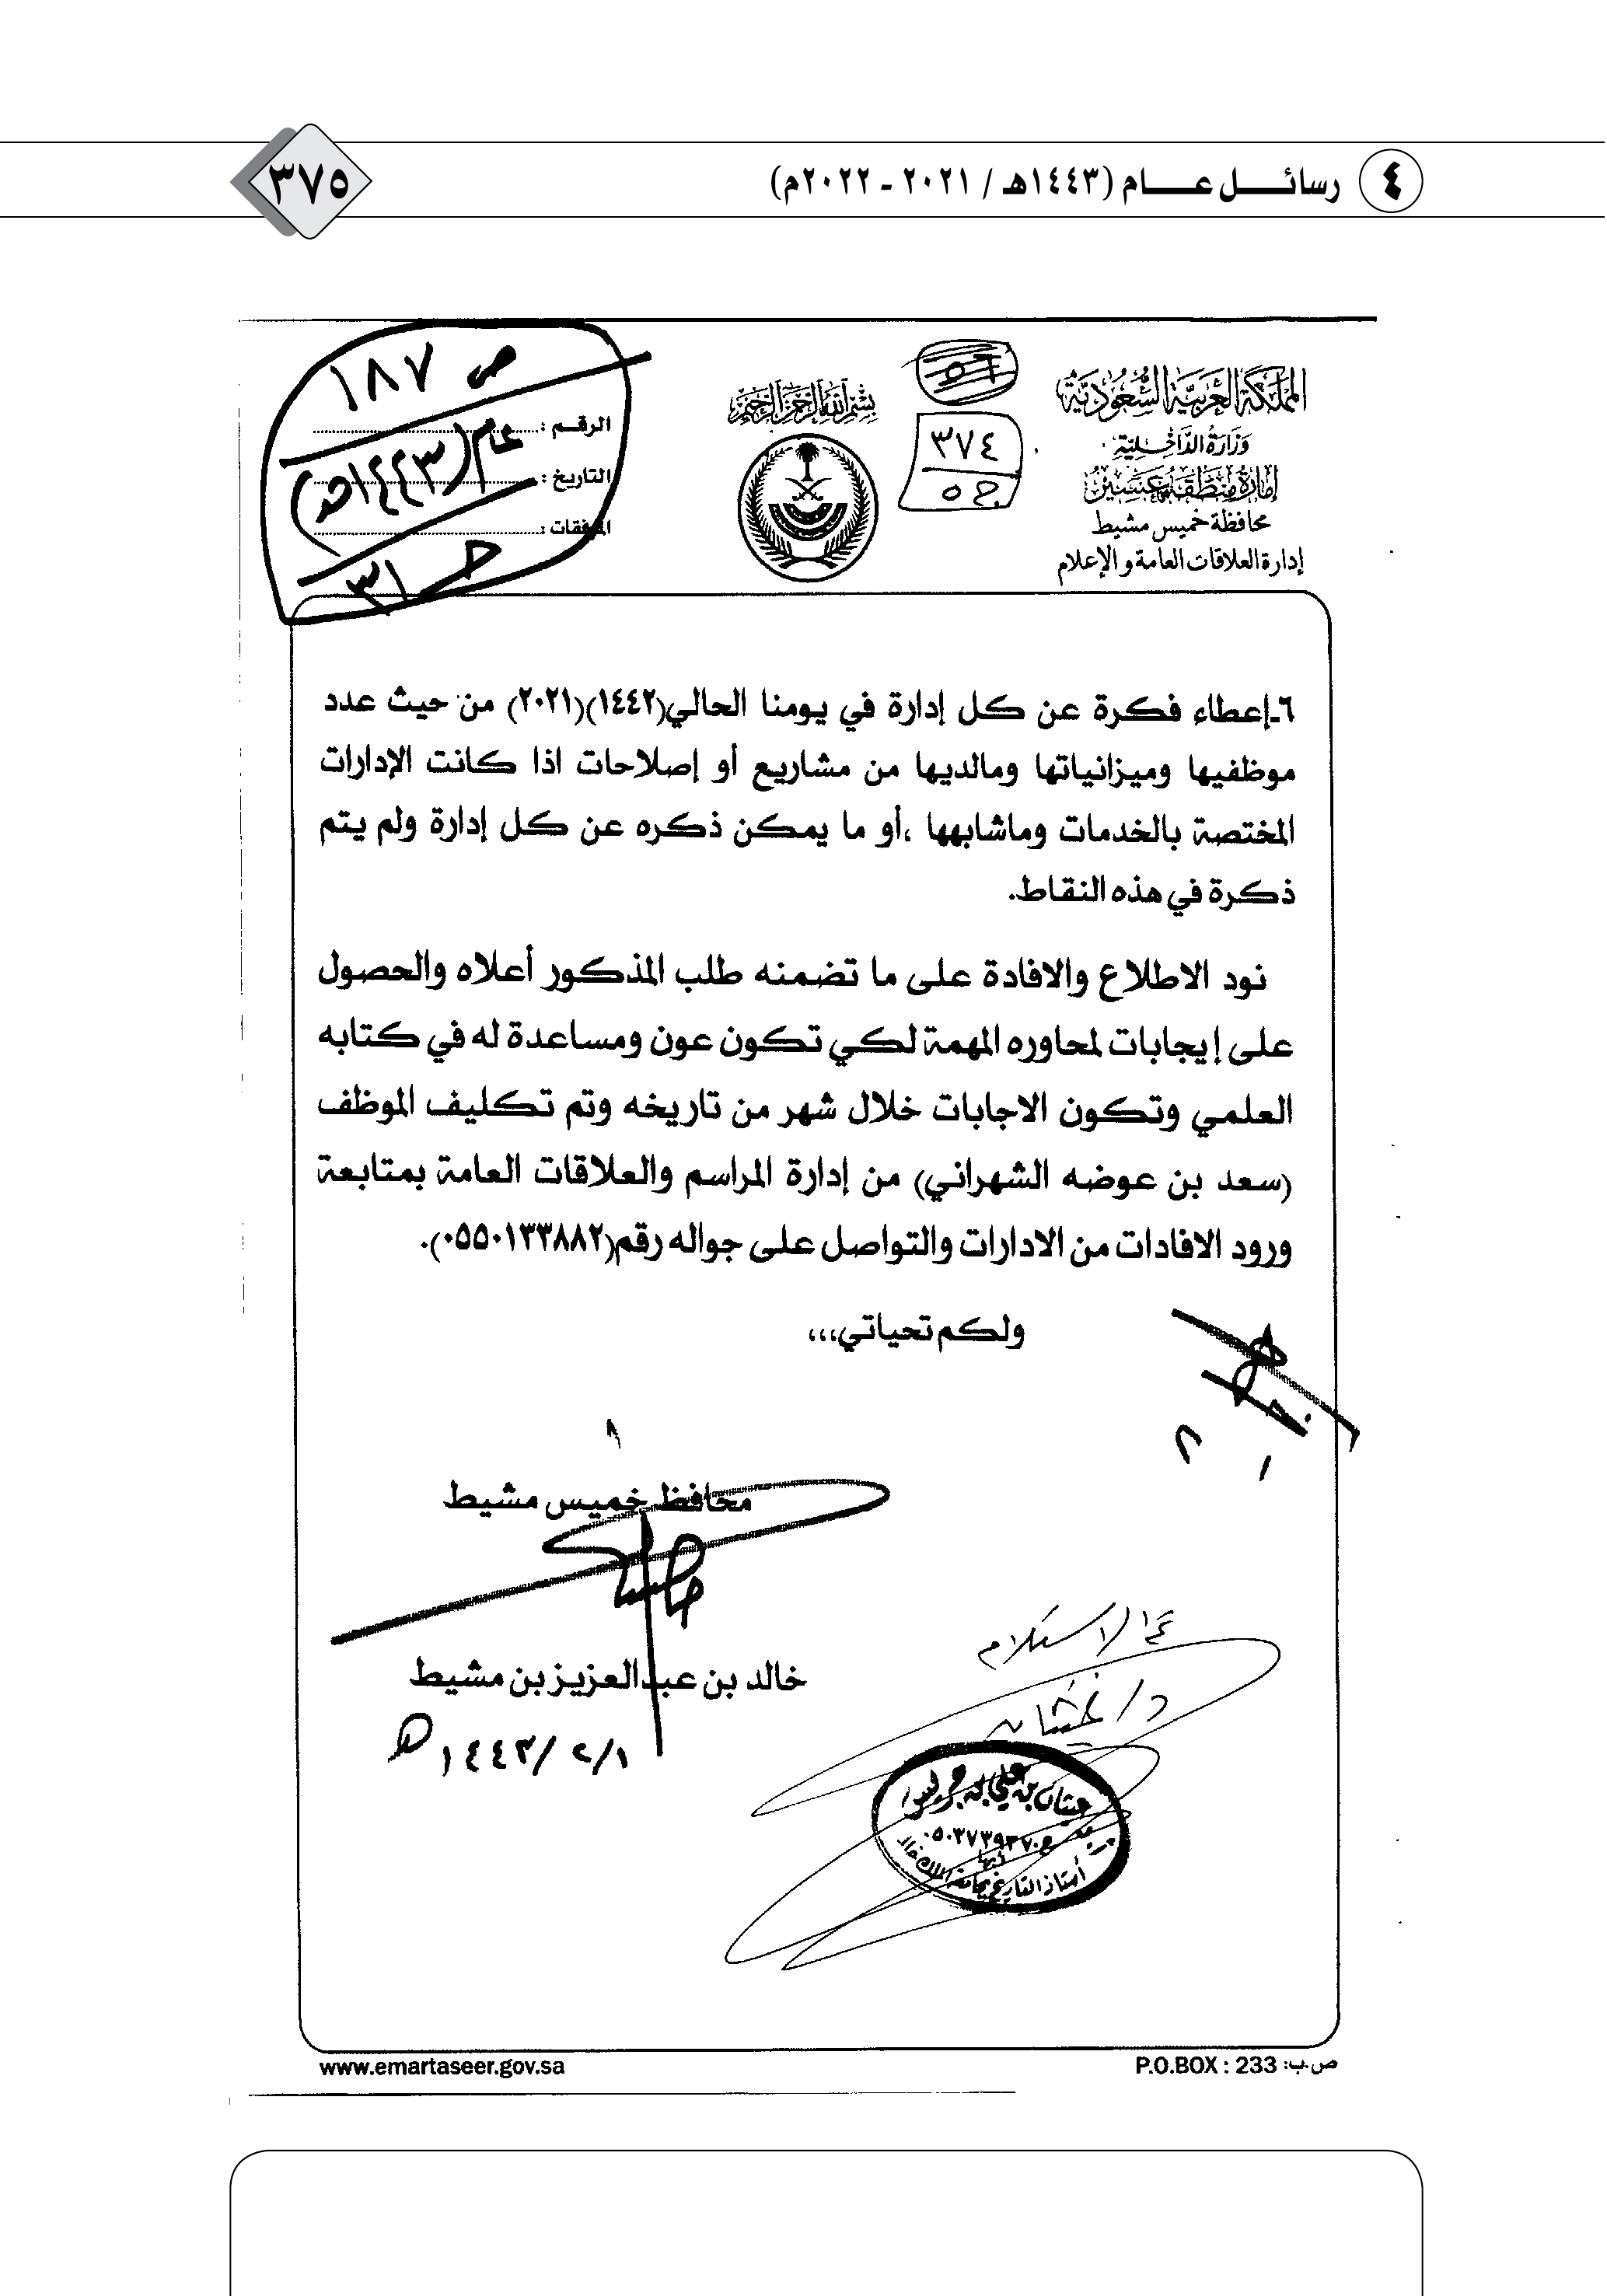 ٤ رسائل عام (١٤٤٣هـ / ٢٠٢١ - ٢٠٢٢م)
٣٧٥
المملكة العربية السعودية
وزارة الداخلية
إمارة منطقة عسير
محافظة خميس مشيط
إدارة العلاقات العامة و الإعلام
٥٦
٣٧٤
٥ ج
بسم الله الرحمن الرحيم
ص ١٨٧
الرقم :
عام (١٤٤٣هـ)
التاريخ :
المرفقات :
ج ٣١
٦-إعطاء فكرة عن كل إدارة في يومنا الحالي(١٤٤٢)(٢٠٢١) من حيث عدد
موظفيها وميزانياتها ومالديها من مشاريع أو إصلاحات اذا كانت الإدارات
المختصة بالخدمات وماشابهها ،أو ما يمكن ذكره عن كل إدارة ولم يتم
ذكرة في هذه النقاط.
نود الاطلاع والافادة على ما تضمنه طلب المذكور أعلاه والحصول
على إيجابات لمحاوره المهمة لكي تكون عون ومساعدة له في كتابه
العلمي وتكون الاجابات خلال شهر من تاريخه وتم تكليف الموظف
(سعد بن عوضه الشهراني) من إدارة المراسم والعلاقات العامة بمتابعة
ورود الافادات من الادارات والتواصل على جواله رقم(٠٥٥٠١٣٣٨٨٢).
ولكم تحياتي،،،
محافظ خميس مشيط
خالد بن عبدالعزيز بن مشيط
١/٢/١٤٤٣هـ
الاستلام
د/ غيثان
غيثان بن علي بن جريس
ج ٠٥٠٣٧٣٩٣٧٠
أبها
أستاذ التاريخ بجامعة الملك خالد
ص.ب: P.O.BOX : 233
www.emartaseer.gov.sa